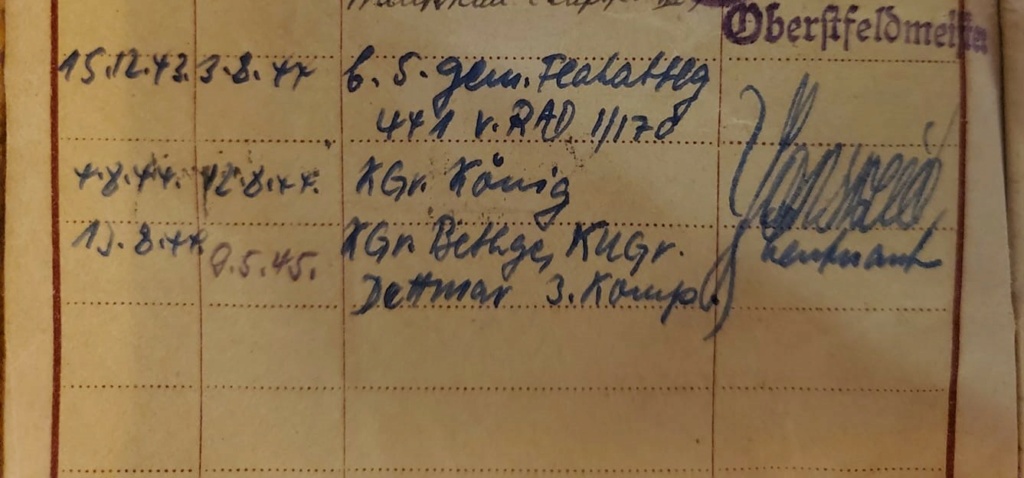 Oberstfeldmeister
15.12.43. 3.8.44 b. 5. gem. Flakabtlg
441 v. RAD 1/170
4.8.44. 12.8.44. KGr. König
13.8.44. 9.5.45. KGr. Bethge, KUGr.
Dettmar 3. Komp.
Leutnant